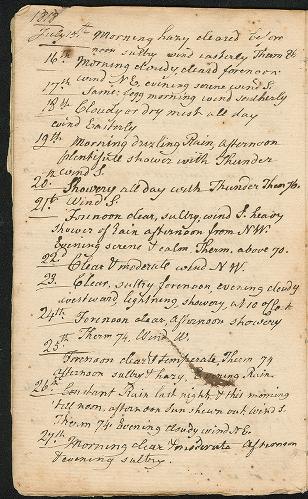 1818
July 15th Morning hazy cleared before
noon sultry wind easterly Therm 86
16th Morning cloudy, cleard forenoon
wind N E, evening serene wind S.
17th Same, fogg morning wind southerly
18th Cloudy or dry mist all day
wind Easterly
19th Morning drizling Rain, afternoon
plentifull shower with Thunder
wind S.
20. Showery all day with Thunder Therm 76.
21st Wind S.
Forenoon clear, sultry, wind S. heavy
shower of Rain afternoon from N. W.
Evening serene & calm Therm. above 70.
22d Clear & moderate wind N W.
23. Clear, sultry forenoon, evening cloudy
westward lightning showery, at 10 oClock
24th Forenoon clear, Afternoon showery
Therm 74, Wind W.
25th
Forenoon clear & temperate, Therm 74
afternoon sultry & hazy, Evening Rain.
26th Constant Rain last night & this morning
till noon, afternoon Sun shewn out wind S.
Therm 74. Evening cloudy wind N E.
27th Morning clear & moderate Afternoon
& evening sultry.